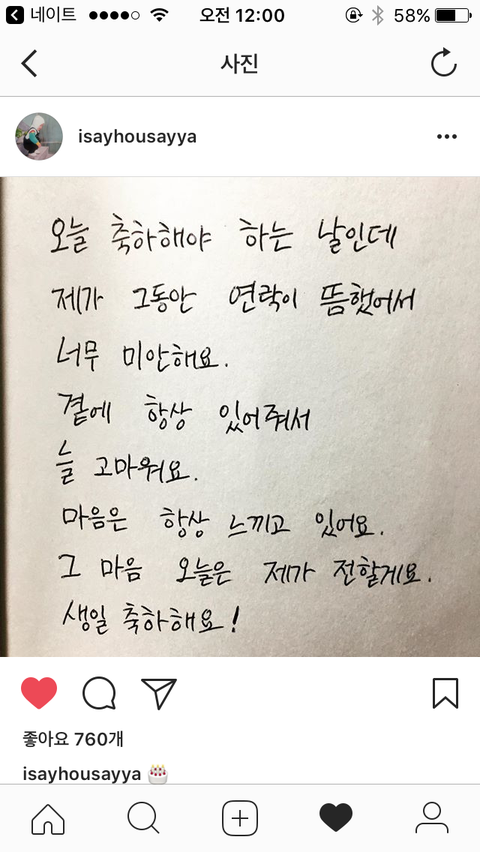 네이트 오전 12:00 58%
사진
isayhousayya
오늘 축하해야 하는 날인데
제가 그동안 연락이 뜸했어서
너무 미안해요.
곁에 항상 있어줘서
늘 고마워요.
마음은 항상 느끼고 있어요.
그 마음 오늘은 제가 전할게요.
생일 축하해요!
좋아요 760개
isayhousayya 🎂